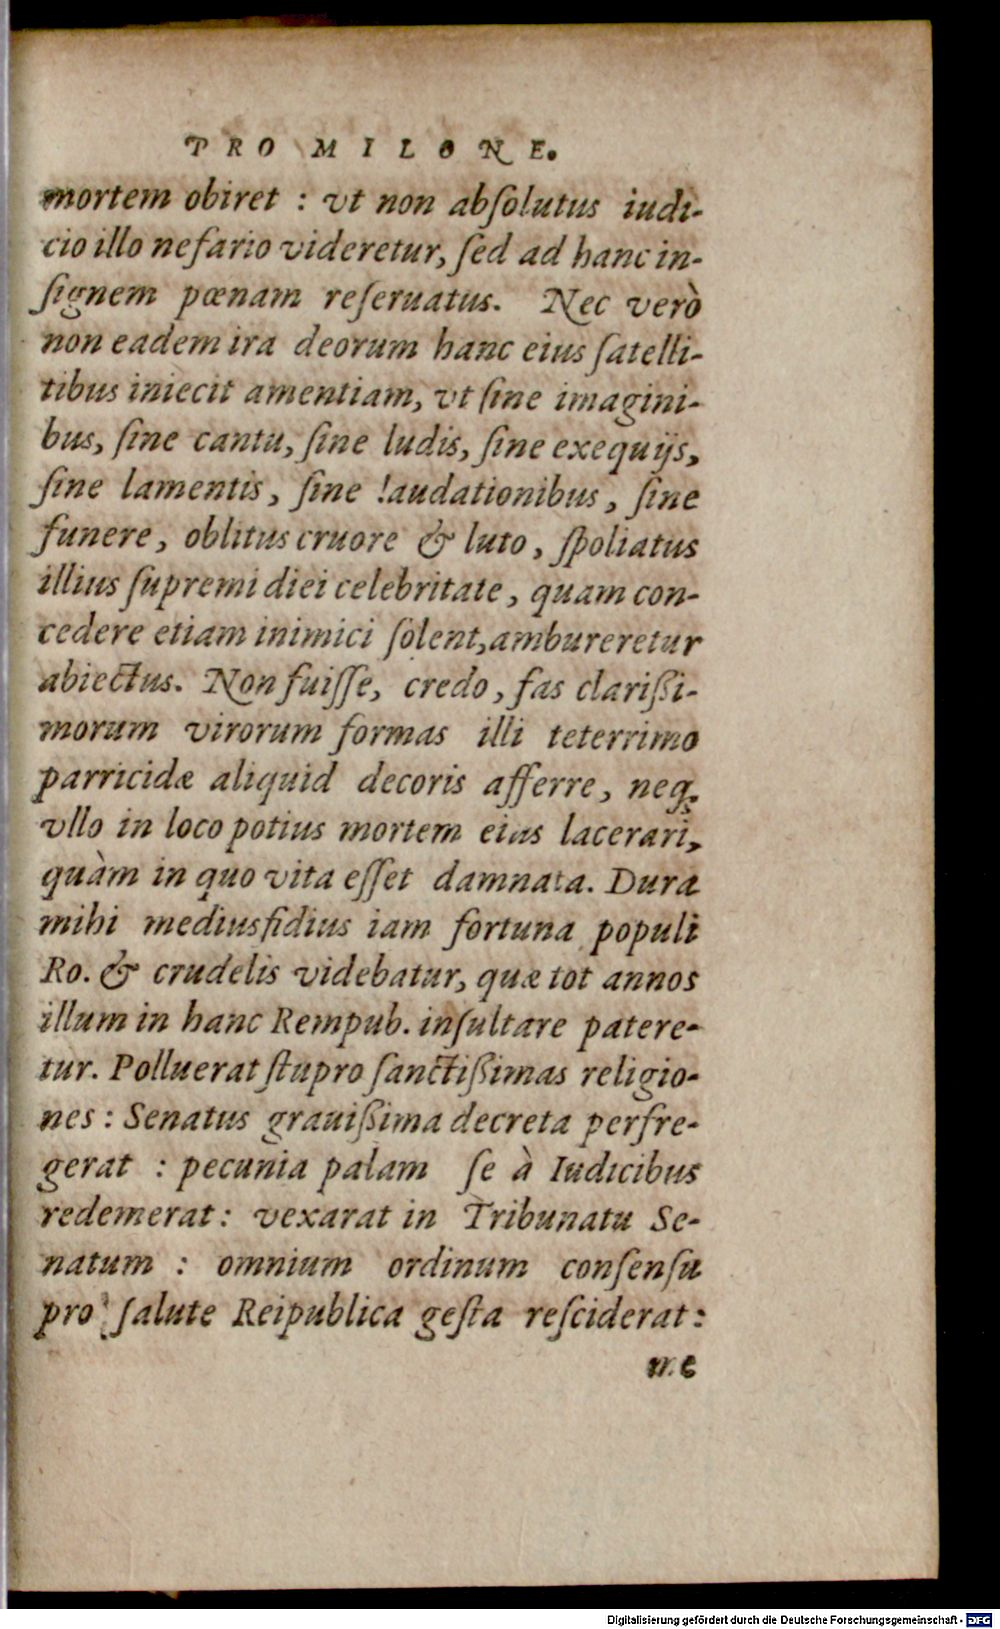 PRO MILONE.
mortem obiret : vt non abſolutus iudi-
cio illo nefario videretur, ſed ad hanc in-
ſignem pœnam reſeruatus. Nec verò
non eadem ira deorum hanc eius ſatelli-
tibus iniecit amentiam, vt ſine imagini-
bus, ſine cantu, ſine ludis, ſine exequijs,
ſine lamentis, ſine laudationibus, ſine
funere, oblitus cruore & luto, ſpoliatus
illius ſupremi diei celebritate, quam con-
cedere etiam inimici ſolent, ambureretur
abiectus. Non fuiſſe, credo, fas clarißi-
morum virorum formas illi teterrimo
parricidæ aliquid decoris afferre, neq;
vllo in loco potius mortem eius lacerari,
quàm in quo vita eſſet damnata. Dura
mihi mediusfidius iam fortuna populi
Ro. & crudelis videbatur, quæ tot annos
illum in hanc Rempub. inſultare patere-
tur. Polluerat ſtupro ſanctißimas religio-
nes : Senatus grauißima decreta perfre-
gerat : pecunia palam ſe à Iudicibus
redemerat : vexarat in Tribunatu Se-
natum : omnium ordinum conſenſu
pro ſalute Reipublica geſta reſciderat :
me
Digitalisierung gefördert durch die Deutsche Forschungsgemeinschaft - DFG